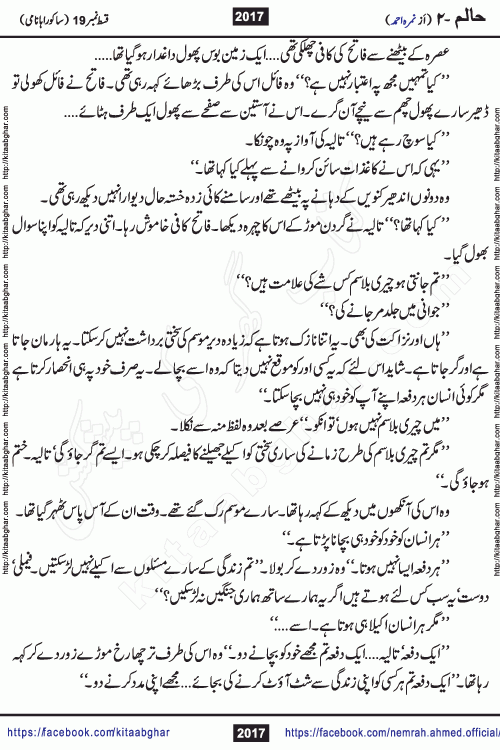 حالم -۲ (از نمرہ احمد)
2017
قسط نمبر 19 (ساکورا ہانامی)
عصرہ کے بیٹھنے سے فاتح کی کافی چھلکی تھی....ایک زمین بوس پھول داغدار ہو گیا تھا.....
’’کیا تمہیں مجھ پہ اعتبار نہیں ہے؟‘‘ وہ فائل اس کی طرف بڑھائے کہہ رہی تھی۔ فاتح نے فائل کھولی تو
ڈھیر سارے پھول چھم سے نیچے آن گرے۔ اس نے آستین سے صفحے سے پھول ایک طرف ہٹائے....
’’کیا سوچ رہے ہیں؟‘‘ تالیہ کی آواز پہ وہ چونکا۔
’’یہی کہ اس نے کاغذات سائن کروانے سے پہلے کیا کہا تھا۔‘‘
وہ دونوں اندھیر کنویں کے دہانے پہ بیٹھے تھے اور سامنے کائی زدہ خستہ حال دیوار انہیں دیکھ رہی تھی۔
’’کیا کہا تھا؟‘‘ تالیہ نے گردن موڑ کے اس کا چہرہ دیکھا۔ فاتح کافی خاموش رہا۔ اتنی دیر کہ تالیہ کو اپنا سوال
بھول گیا۔
’’تم جانتی ہو چیری بلاسم کس شے کی علامت ہیں؟‘‘
’’جوانی میں جلد مر جانے کی؟‘‘
’’ہاں اور نزاکت کی بھی۔ یہ اتنا نازک ہوتا ہے کہ زیادہ دیر موسم کی سختی برداشت نہیں کر سکتا۔ یہ ہار مان جاتا
ہے اور گر جاتا ہے۔ شاید اس لئے کہ یہ کسی اور کو موقع نہیں دیتا کہ وہ اسے بچا لے۔ یہ صرف خود پہ ہی انحصار کرتا ہے
مگر کوئی انسان ہر دفعہ اپنے آپ کو خود ہی نہیں بچا سکتا۔‘‘
’’میں چیری بلاسم نہیں ہوں‘ تو انکو۔‘‘ عرصے بعد وہ لفظ منہ سے نکلا۔
’’مگر تم چیری بلاسم کی طرح زمانے کی ساری سختی کو اکیلے جھیلنے کا فیصلہ کر چکی ہو۔ ایسے تم گر جاؤ گی‘ تالیہ۔ ختم
ہو جاؤ گی۔‘‘
وہ اس کی آنکھوں میں دیکھ کے کہہ رہا تھا۔ سارے موسم رک گئے تھے۔ وقت ان کے آس پاس ٹھہر گیا تھا۔
’’ہر انسان کو خود کو خود ہی بچانا پڑتا ہے۔‘‘
’’ہر دفعہ ایسا نہیں ہوتا۔‘‘ وہ زور دے کر بولا۔ ’’تم زندگی کے سارے مسئلوں سے اکیلے نہیں لڑ سکتیں۔ فیملی‘
دوست‘ یہ سب کس لئے ہوتے ہیں اگر یہ ہمارے ساتھ ہماری جنگیں نہ لڑ سکیں؟‘‘
’’مگر ہر انسان اکیلا ہی ہوتا ہے۔ اسے....‘‘
’’ایک دفعہ‘ تالیہ....ایک دفعہ تم مجھے خود کو بچانے دو۔‘‘ وہ اس کی طرف ترچھا رخ موڑے زور دے کر کہہ
رہا تھا۔ ’’ایک دفعہ تم ہر کسی کو اپنی زندگی سے شٹ آؤٹ کرنے کی بجائے....مجھے اپنی مدد کرنے دو۔‘‘
http://kitaabghar.com http://kitaabghar.com http://kitaabghar.com http://kitaabghar.com
http://kitaabghar.com http://kitaabghar.com http://kitaabghar.com http://kitaabghar.com
https://facebook.com/kitaabghar
2017
https://facebook.com/nemrah.ahmed.official/